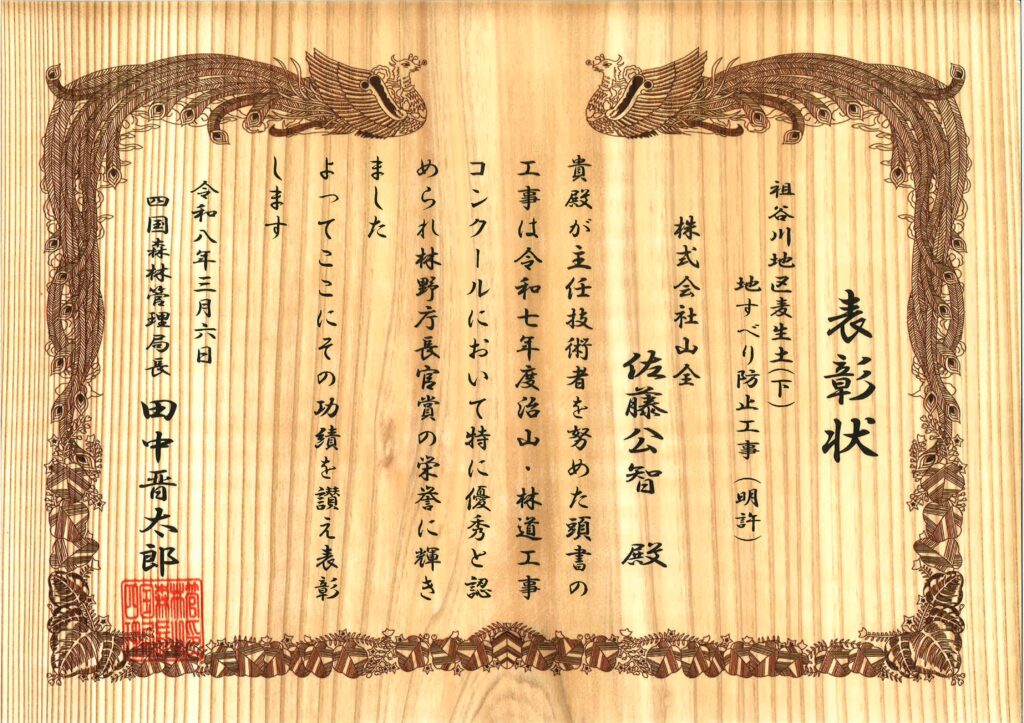 表彰状
祖谷川地区麦生土(下)
地すべり防止工事(明許)
株式会社山全
佐藤公智 殿
貴殿が主任技術者を努めた頭書の
工事は令和七年度治山・林道工事
コンクールにおいて特に優秀と認
められ林野庁長官賞の栄誉に輝き
ました
よってここにその功績を讃え表彰
します
令和八年三月六日
四国森林管理局長 田中晋太郎